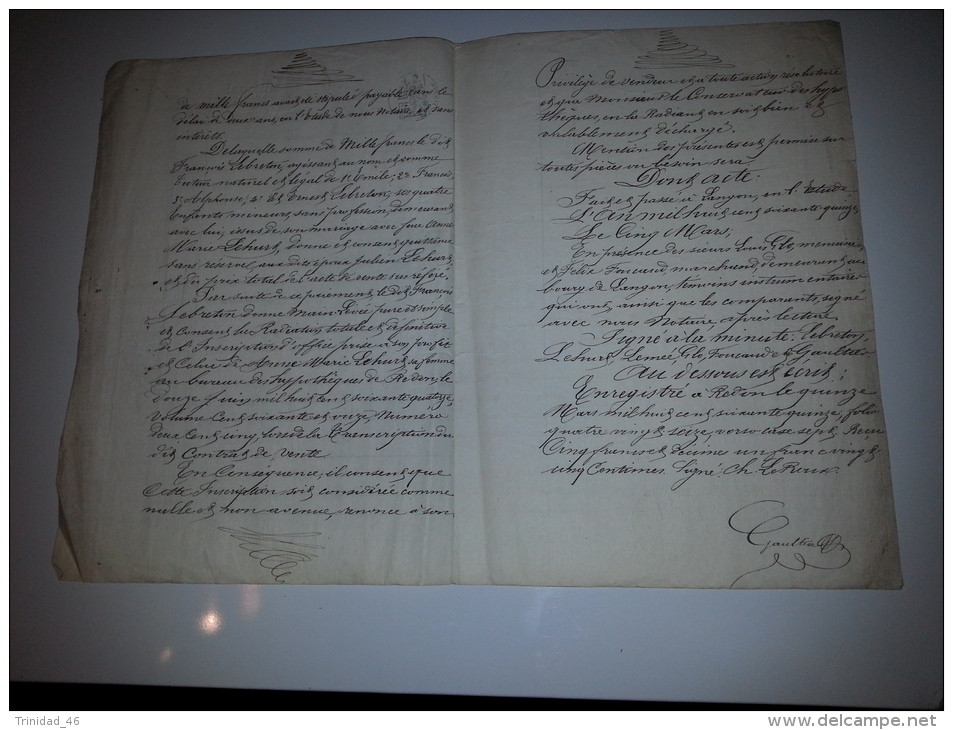 de mille francs avait été stipulée payable dans le
délai de deux ans, en l'Etude de nous Notaire, et sans
intérêts.
De laquelle somme de Mille francs le dit
François Lebreton, agissant au nom et comme
tuteur naturel et légal de 1° Emile, 2° Francis,
3° Alphonse, 4° Et Ernest Lebreton, ses quatre
enfants mineurs, sans profession, demeurant
avec lui, issus de son mariage avec feue Anne
Marie Lehurt, donne et consent quittance
sans réserve, aux dits époux Julien Lehurt
et du prix total de l'acte de vente sus référé.
Par suite de ce paiement, le dit François
Lebreton donne Main Levée pure et simple
et consent la Radiation totale et définitive
de l'Inscription d'office prise à son profit
et Celui de Anne Marie Lehurt, sa femme
au bureau des hypothèques de Redon, le
douze Juin mil huit cent soixante quatorze,
volume Cent soixante et onze, Numéro
deux Cent Cinq, lors de la Transcription du
dit Contrat de vente.
En Conséquence, il consent que
Cette Inscription soit considérée comme
nulle et non avenue, renonce à son
Privilège de vendeur et à toute action résolutoire
et que Monsieur le Conservateur des hypo
thèques, en la Radiant, en soit bien et
valablement déchargé.
Mention des présentes est permise sur
toutes pièces où besoin sera.
Dont acte:
Fait et passé à Langon, en l'étude.
L'An mil huit cent soixante quinze
Le Cinq Mars,
En présence des sieurs Louis Glo, menuisier,
et Félix Foucaud, marchand, demeurant au
bourg de Langon, témoins instrumentaires
qui ont, ainsi que les comparants, signé
avec nous Notaire, après lecture.
Signé à la minute: Lebreton,
Lehurt, Lemée, Glo, Foucaud et Gaultier
Au dessous est écrit:
Enregistré à Redon le quinze
Mars mil huit cent soixante quinze, folio
quatre vingt seize, verso case sept. Reçu
Cinq francs et décime un franc vingt
cinq Centimes. Signé: Ch. Le Roux.
Gaultier
Trinidad_46